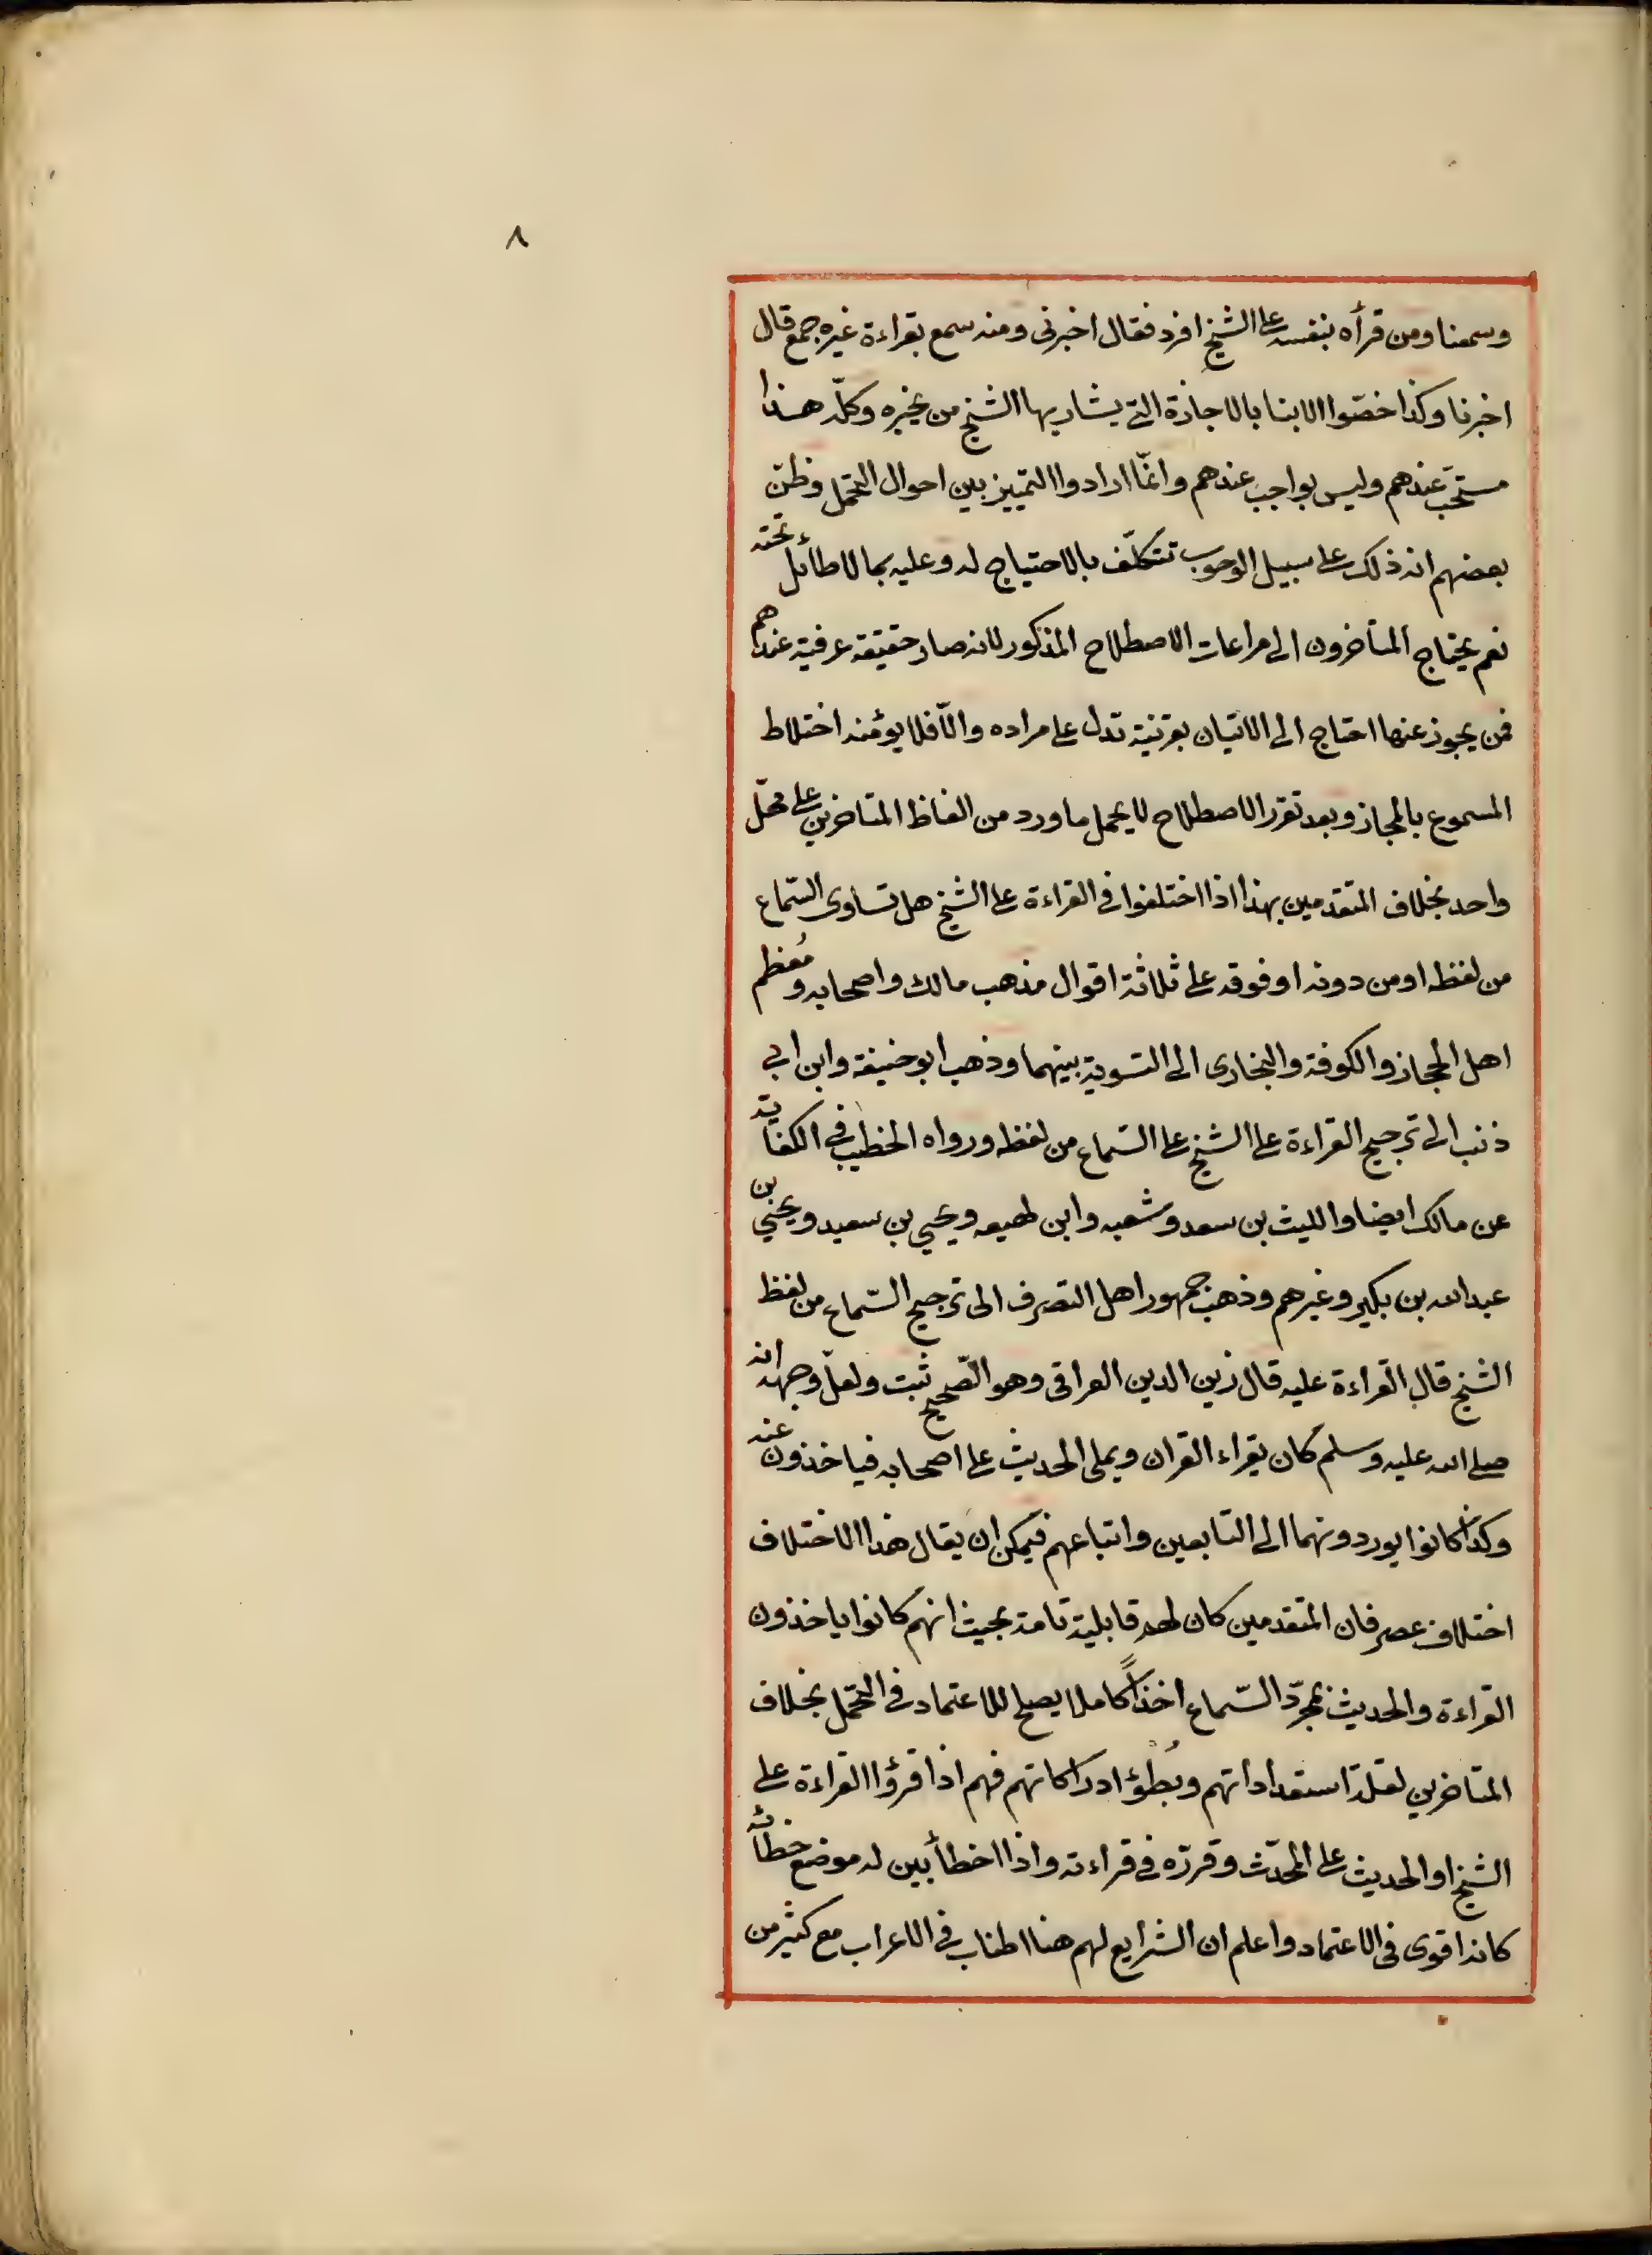 ٨
وسمعنا ومن قرأه بنفسه على الشيخ افرد فقال اخبرنى ومنه سمع بقراءة غيره جمع قال
اخبرنا وكذا خصّوا الابنا بالاجازة التى يشار بها الشيخ من يخبره وكلّه هذا
مستحّب عندهم وليس بواجب عندهم وانمّا ارادوا التمييز بين احوال التحمّل وظنّ
بعضهم انه ذلك على سبيل الوجوب تتكلّف بالاحتياج له وعليه بما لاطائل تحته
نعم يحتاج المتأخرون الى مراعات الاصطلاح المذكور لانه صار حقيقة عرفية عندهم
فمن يجوز عنها احتاج الى الاتيان بقرنية تدل على مراده والّا فلا يؤمنه اختلاط
المسموع بالمجاز وبعد تقرر الاصطلاح لا يحمل ما ورد من الفاظ المتاخرين على محّل
واحد بخلاف المتقدمين بهذا اذا اختلفوا فى القراءة على الشيخ هل تساوى السّماع
من لفظه او من دونه او فوقه على ثلاثة اقوال مذهب مالك واصحابه ومُعظم
اهل الحجاز والكوفة والبخارى الى التسوية بينهما وذهب ابو حنيفة وابن ابى
ذنب الى ترجيح القراءة على الشيخ على السّماع من لفظه ورواه الخطيب فى الكفاية
عن مالك ايضا والليث بن سعد وشعبه وابن لهيعه ويحيى بن سعيد ويحيى بن
عبدالله بن بكير وغيرهم وذهب جمهور اهل التصرف الى ترجيح السّماع من لفظ
الشيخ قال القراءة عليه قال زين الدين العراقى وهو الصّحيح ثبت ولعلّ وجهه انه
صلى الله عليه وسلم كان يقراء القران ويملى الحديث على اصحابه فياخذون عنه
وكذا كانوا يوردونهما الى التابعين واتباعهم فيمكن ان يقال هذا الاختلاف
اختلاف عصر فان المتقدمين كان لهم قابلية تامة بحيث انهم كانوا ياخذون
القراءة والحديث بمجرّد السّماع اخذاً كاملا يصلح للاعتماد فى التحمّل بخلاف
المتاخرين لقلة استعداداتهم وبُطؤ ادراكاتهم فهم اذا قرؤا القراءة على
الشيخ او الحديث على المحدّث وقررّه فى قراءته واذا اخطأ بين له موضع خطأئه
كانه اقوى فى الاعتماد واعلم ان الشرايع لهم هنا اطناب فى الاعراب مع كثير من